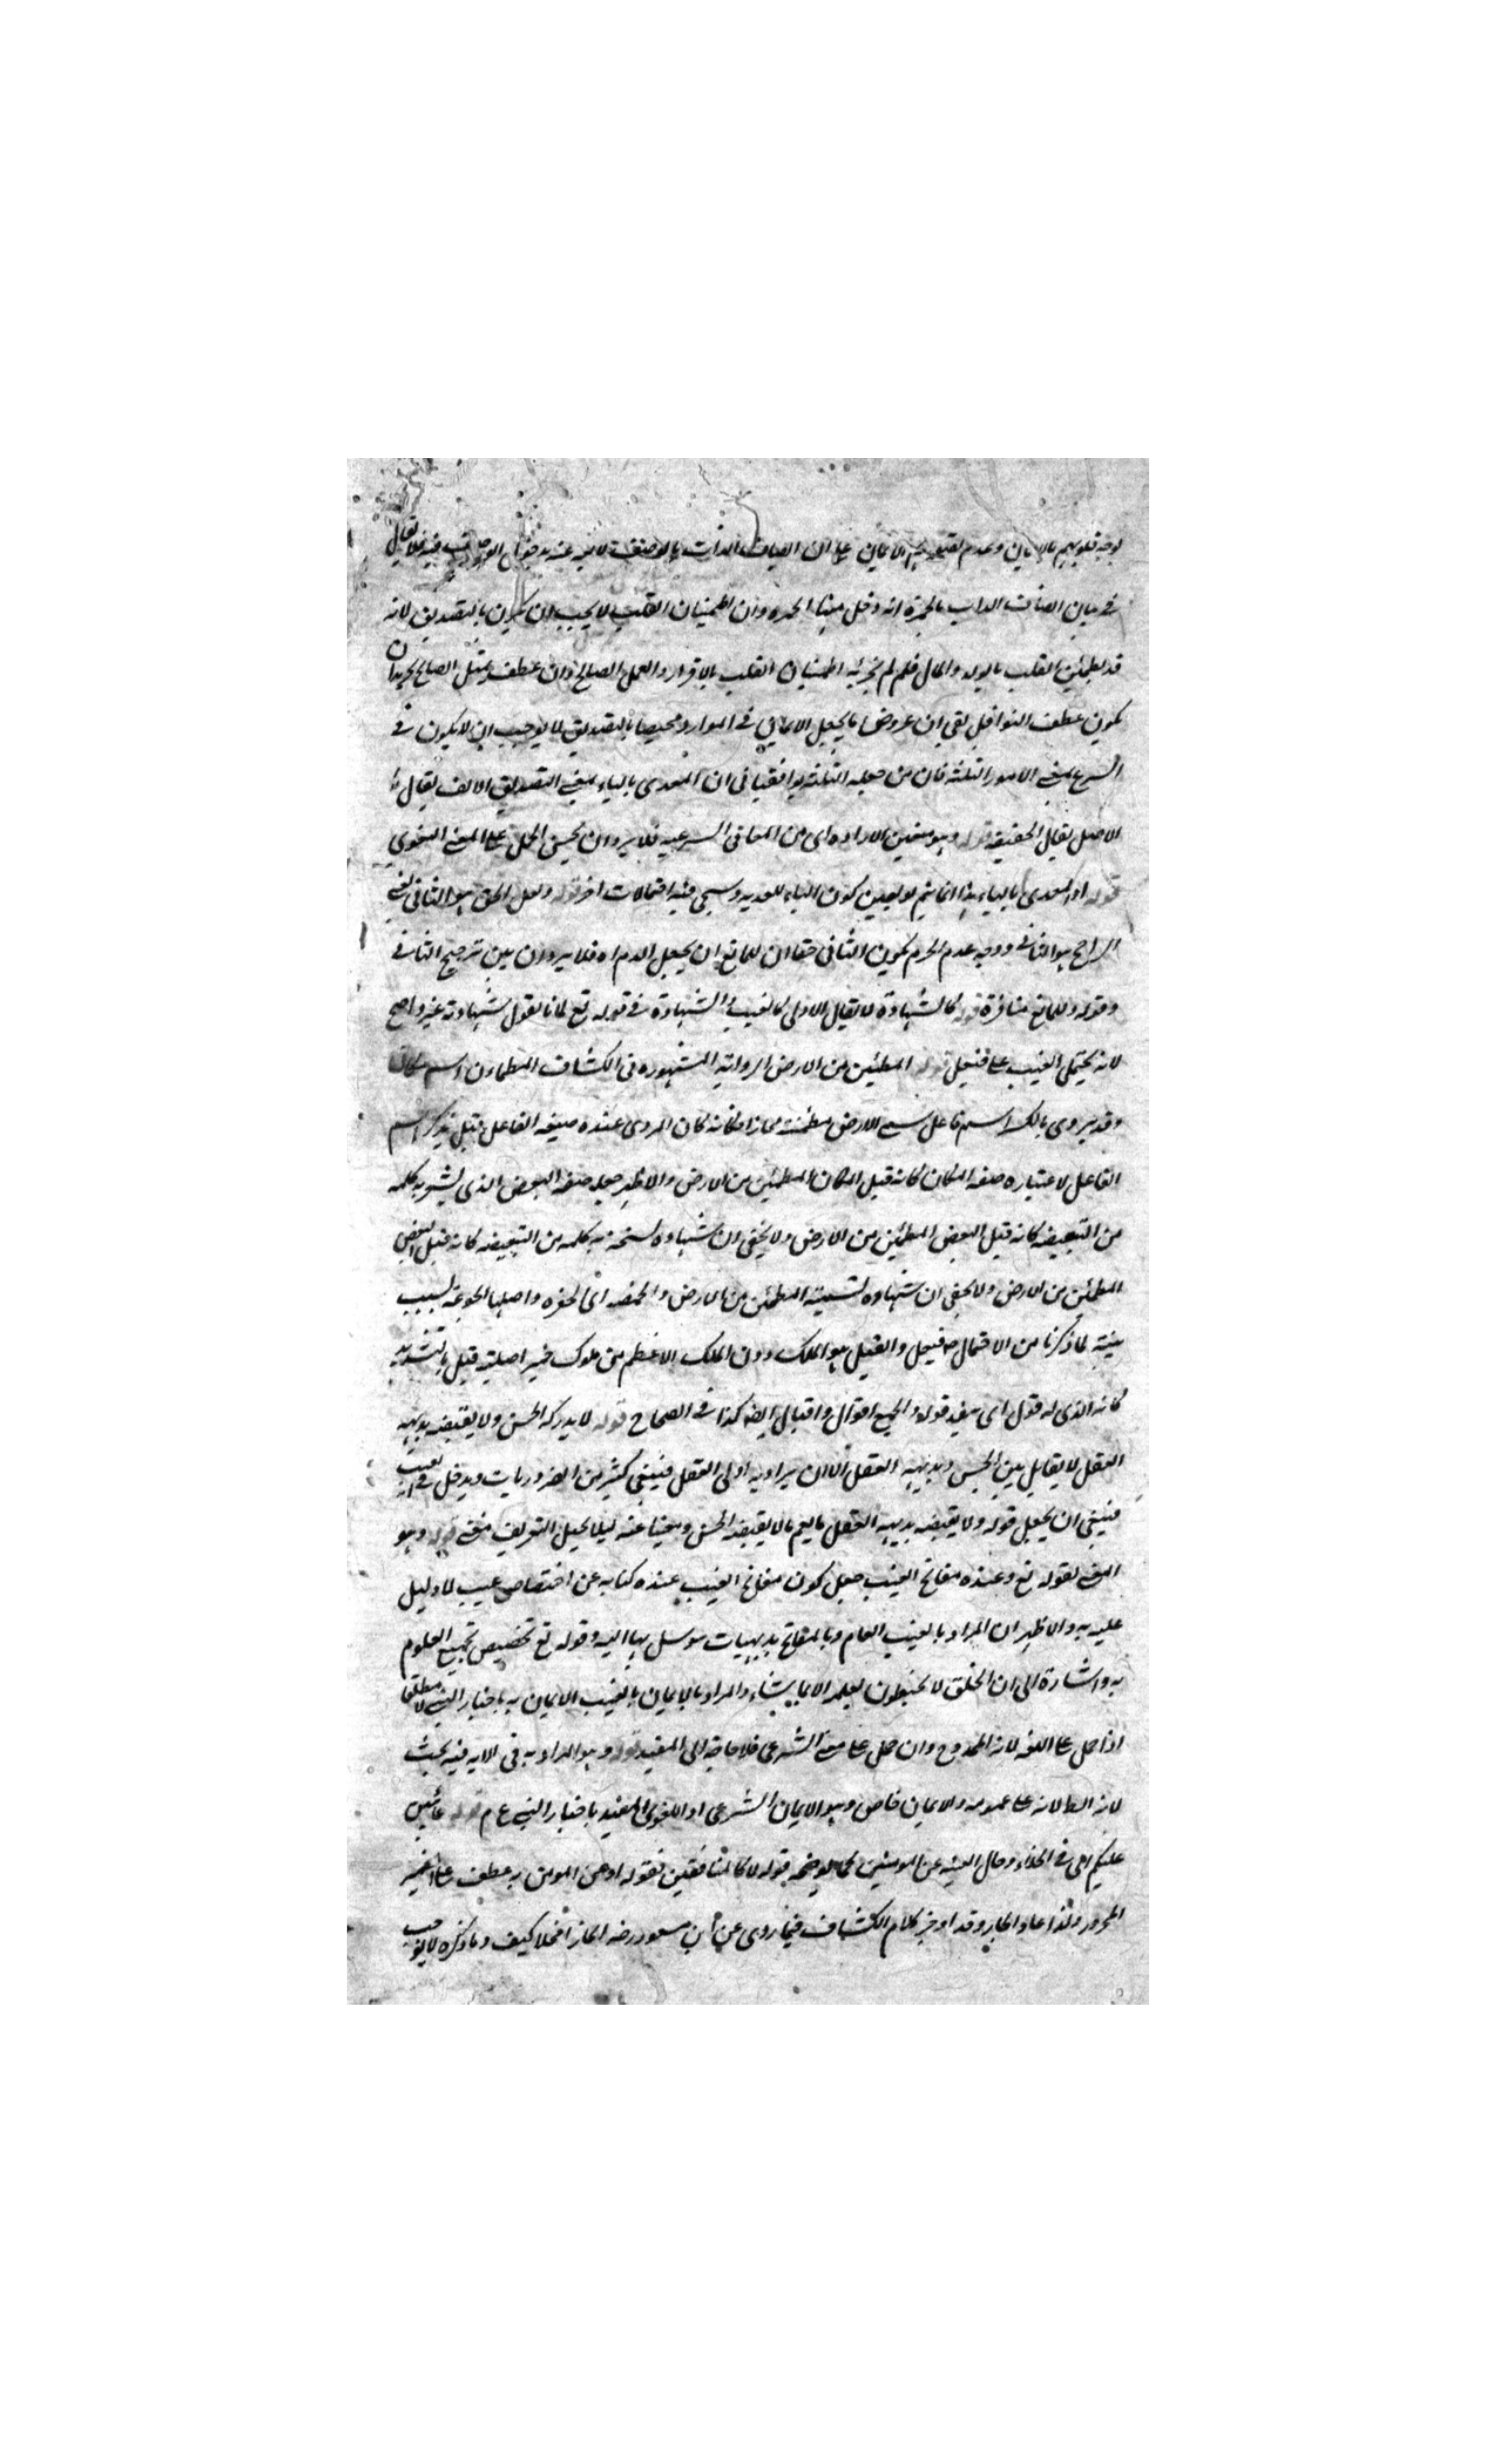 توجه قلوبهم بالايمان وعدم الايمان على ان اتصاف الذات بالوصف لا
في بيان اتصاف الذات بالحمرة انه دخل منها الحمرة وان اطمينان القلب لا يجب ان يكون بالتصديق لانه
قد يطمئن القلب بالولد والمال فلم لم يجز اطمينان القلب بالاقرار والعمل الصالح وان عطف عمل الصالح
يكون عطف النوافل بقي ان عروض ما يجعل الايمان في الموارد مخصصا بالتصديق لا يوجب ان لا يكون في
الشرع بمعنى الامور الثلثة فان من جعله الثلثة يوافقنا في ان المعدى بالباء بمعنى التصديق الالف يقال
الاصل يقابل الحقيقة قوله وهو متعين الارادة اى من المعانى الشرعية فلا يرد ان يحسن الحمل على المعنى اللغوى
قوله او المعدى بالباء هذا انما يتم لو تعين كون الباء للتعدية وسيجى فيه احتمالات اخر قوله ولعل الحق هو الثانى يعنى
الراجح هو الثانى ووجه عدم الجزم بكون الثانى حقا ان للمانع ان يجعل الدم اه فلا يرد ان بين ترجيح الثانى
وقوله وللمانع منافرة قوله كالشهادة لا يقال الاولى كالغيب والشهادة في قوله تع لانا نقول شهادته غير واضح
لانه يحتمل الغيب على فيعل قوله المطمئن من الارض الرواية المشهورة في الكشاف المطمأن اسم مكان
وقد يروى بالكسر اسم فاعل سمى الارض مطمئنة مجازا فكانه كان المروى عنده صيغة الفاعل قيل تذكير اسم
الفاعل لاعتباره صفة المكان كانه قيل المكان المطمئن من الارض والاظهر جعله صفة البعض الذى يشعر به كلمه
من التبعيضية كانه قيل البعض المطمئن من الارض ولا يخفى ان شهادة نسخة به كلمه من التبعيضية كانه قيل البعض
المطمئن من الارض ولا يخفى ان شهادة تسمية المطمئن من الارض والخمصة اى الحفرة واصلها الجوعة ليست
بينة لما ذكرنا من الاحتمال فيعل والقيل هو الملك دون الملك الاعظم من ملوك حمير اصله قيل بالتشديد
كانه الذى له قول اى ينفد قوله والجمع اقوال واقيال ايضا كذا في الصحاح قوله لا يدركه الحس ولا يقتضيه بديهة
العقل لا تقابل بين الحس وبديهة العقل الا ان يراد به اولى العقل فيبقى كثير من الضروريات ويدخل في الغيب
فينبغى ان يجعل قوله ولا يقتضيه بديهة العقل ما يعم ما لا يقتضيه الحس ومغنيا عنه ليلا يختل التعريف منعا قوله وهو
المعنى بقوله تع وعنده مفاتح الغيب جعل كون مفاتح الغيب عنده كناية عن اختصاص غيب لا دليل
عليه به والاظهر ان المراد بالغيب العام وبالمفاتح بديهيات يتوسل بها اليه وقوله تع تخصيص بجميع العلوم
به واشارة الى ان الخلق لا يحيطون بعلمه الا بما يشاء والمراد بالايمان بالغيب الايمان به باخبار النبى لا مطلقا
اذا حمل على اللغة لانه الممدوح وان حمل على معنى الشرعى فلا حاجة الى المقيد قوله وهو المراد به في الاية فيه بحث
لانه الظ لانه على عمومه والايمان خاص وهو الايمان الشرعى او اللغوى المقيد باخبار النبى ع م قوله غائبين
عليكم اى في الخفاء وحال الغيبة عن المومنين كما يوضحه قوله لا كالمنافقين فقوله او عن المومن به عطف على الضمير
المجرور ولذا عاد الجار وقد اوجز كلام الكشاف فيما روى عن ابن مسعود رضه ايجازا مخلا كيف وما ذكره لا يوجب